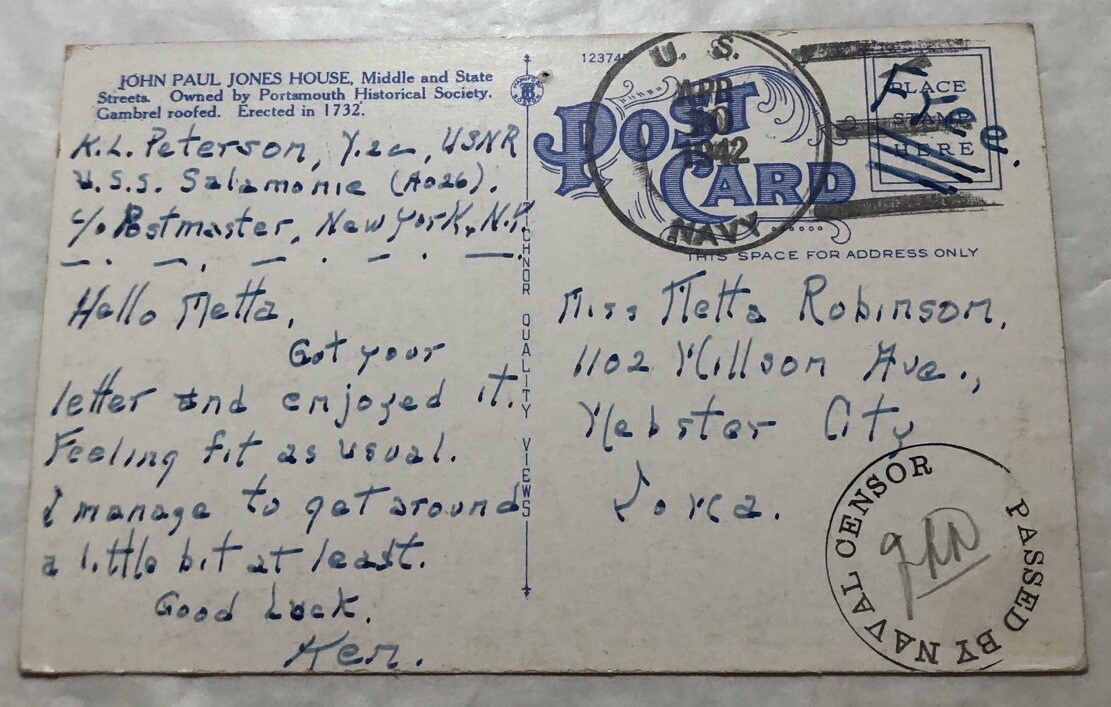 JOHN PAUL JONES HOUSE, Middle and State
Streets. Owned by Portsmouth Historical Society.
Gambrel roofed. Erected in 1732.
K.L. Peterson, Y.2c, USNR
U.S.S. Salamonie (AO26).
c/o Postmaster, New York, N.Y.
Hello Metta,
Got your
letter and enjoyed it.
Feeling fit as usual.
I manage to get around
a little bit at least.
Good Luck.
Ken.
TICHNOR QUALITY VIEWS
POST CARD
U. S.
APR
1942
NAVY
PLACE
STAMP
HERE
Free.
THIS SPACE FOR ADDRESS ONLY
Miss Metta Robinson,
1102 Willson Ave.,
Webster City
Iowa.
PASSED BY NAVAL CENSOR